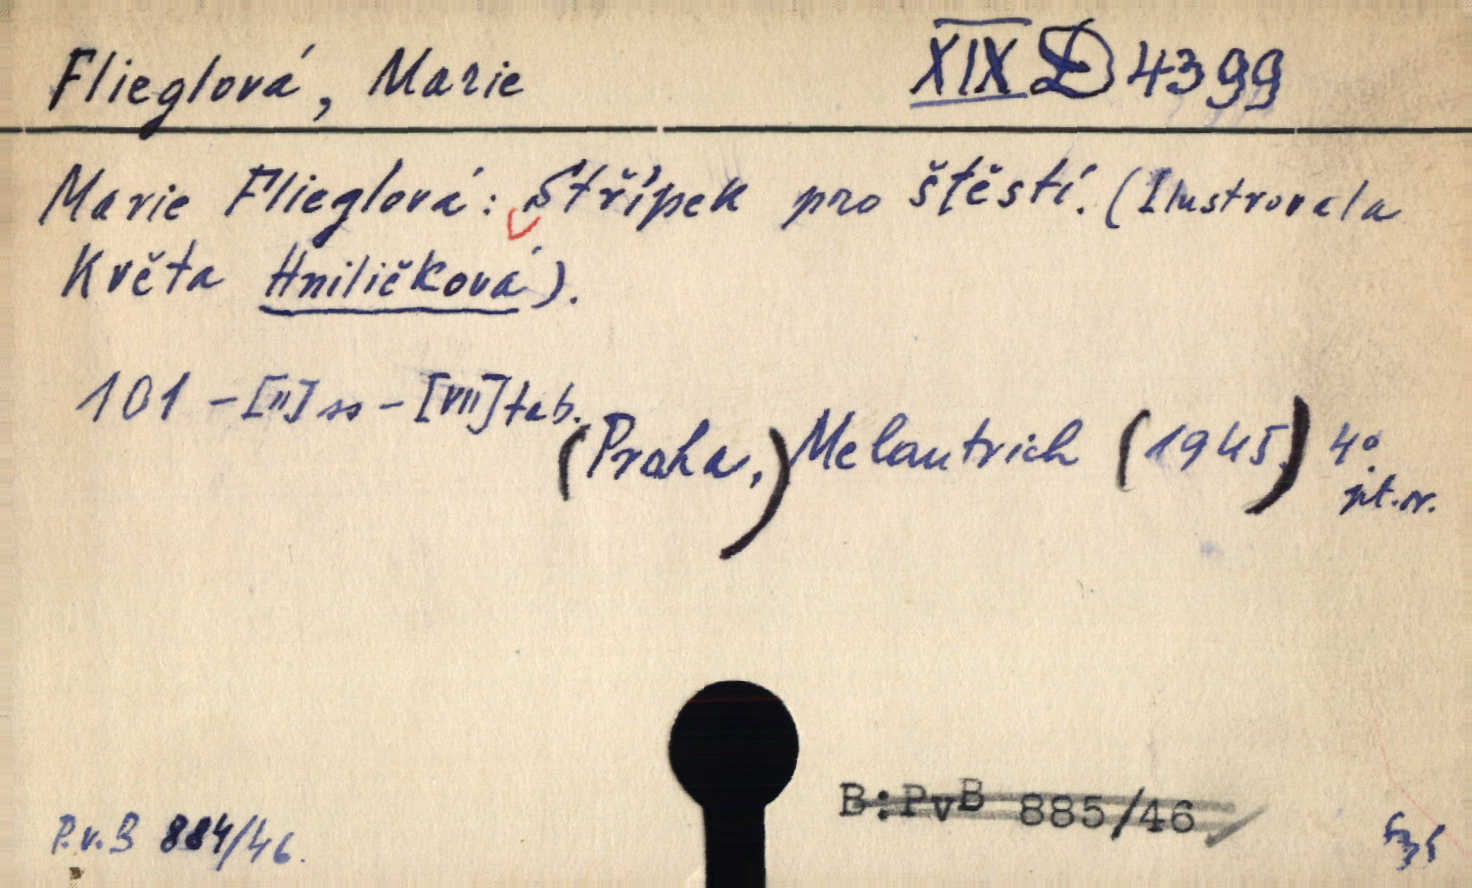 Flieglová, Marie XIX D 4399
Marie Flieglová: Střípek pro štěstí. (Ilustrovala
Květa Hniličková).
101 - [II] ss - [VII] tab.
(Praha,) Melantrich (1945.) 4°
pt.or.
B:PvB 885/46
P.v.B 884/46.